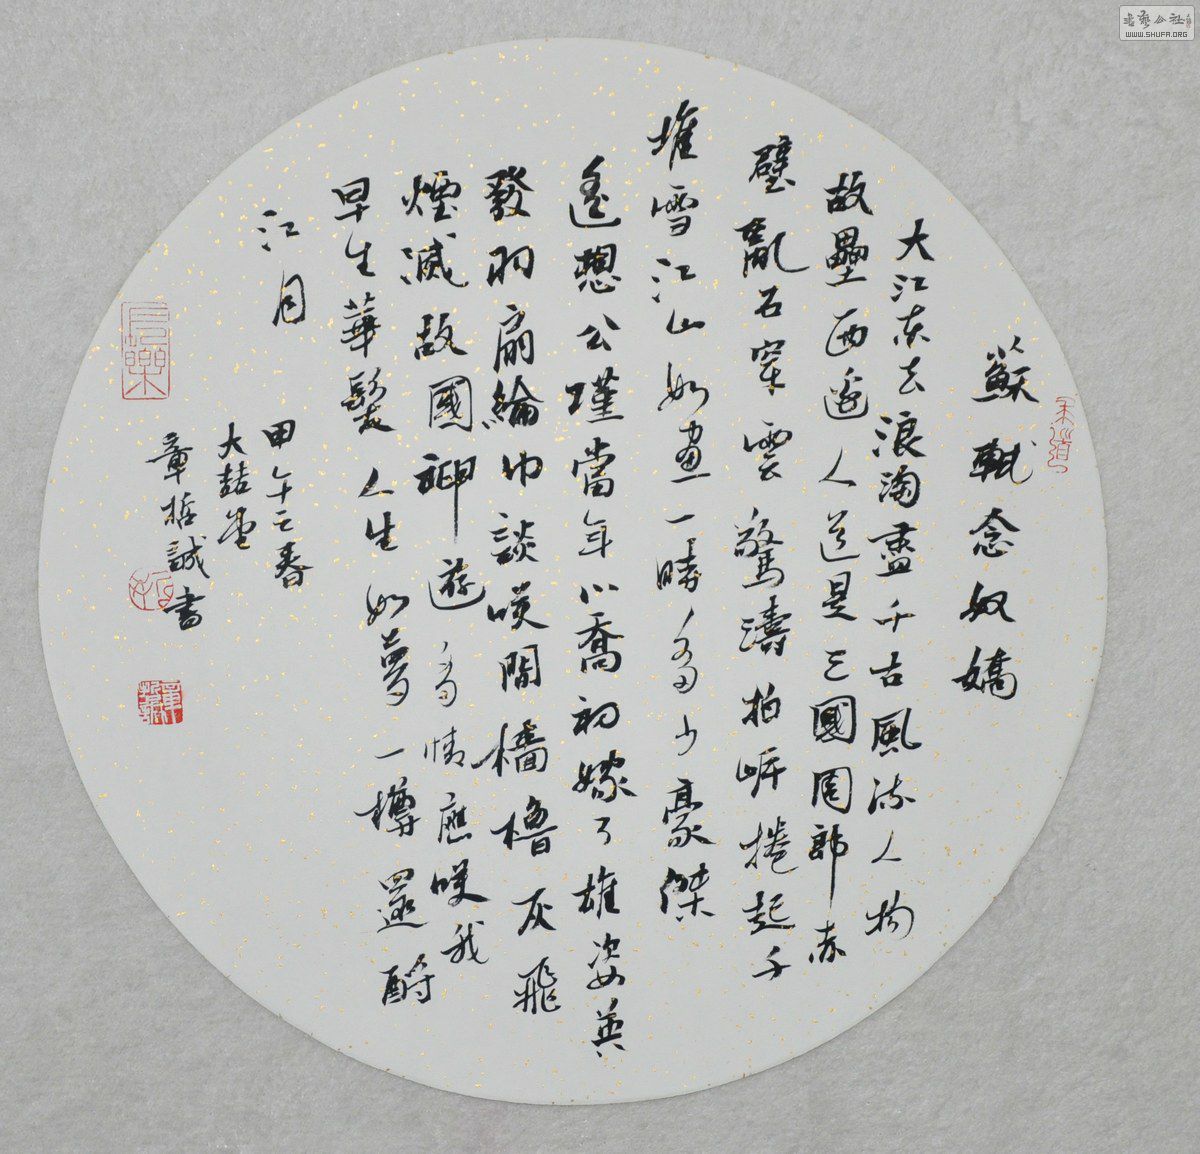 蘇軾念奴嬌
大江東去浪淘盡千古風流人物
故壘西邊人道是三國周郎赤
壁亂石穿雲驚濤拍岸捲起千
堆雪江山如畫一時多少豪傑
遙想公瑾當年小喬初嫁了雄姿英
發羽扇綸巾談咲間檣櫓灰飛
煙滅故國神遊多情應咲我
早生華髮人生如夢一樽還酹
江月
甲午之春
大喆堂
章哲誠書
長樂
WWW.SHUFA.ORG